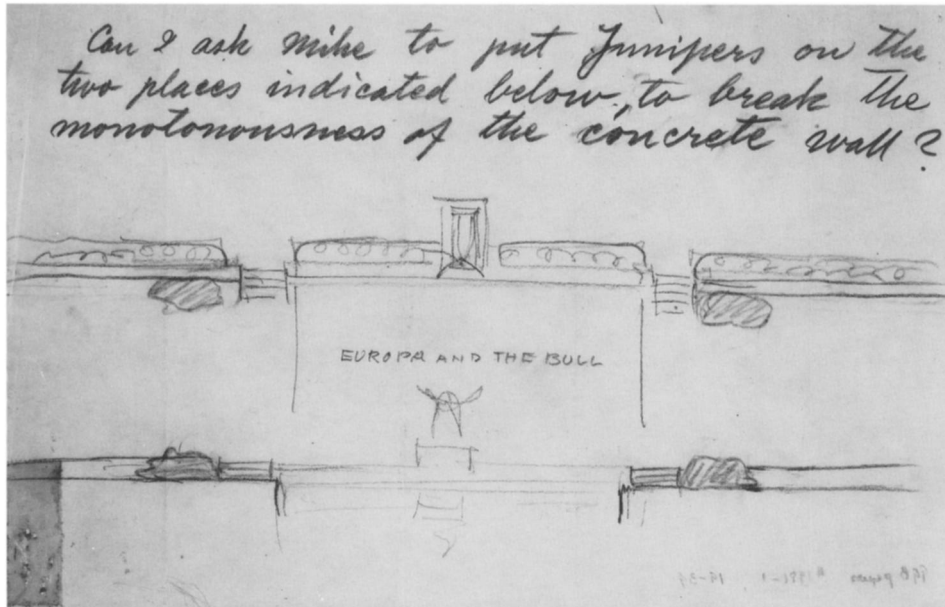 Can I ask Mike to put Junipers on the
two places indicated below, to break the
monotonousness of the concrete wall?
EUROPA AND THE BULL